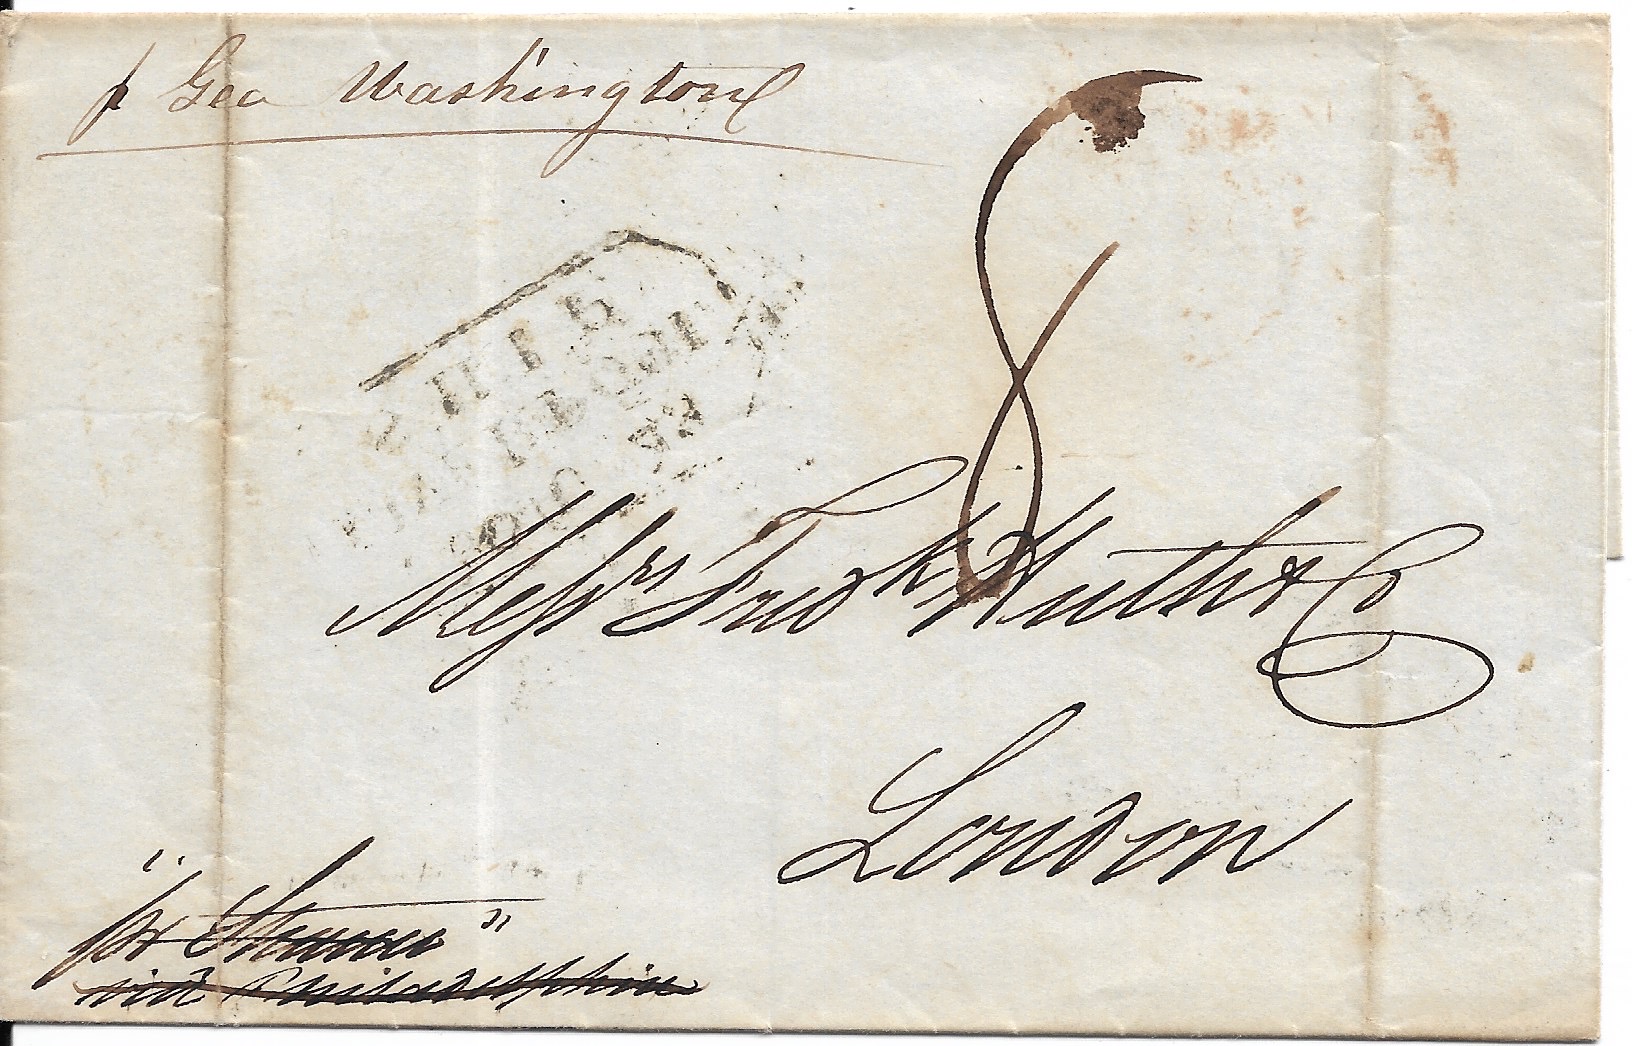 p Geo Washington
8
SHIP
LIVERPOOL
Messrs Fredk Huth & Co
London
"per Steamer"
via Philadelphia